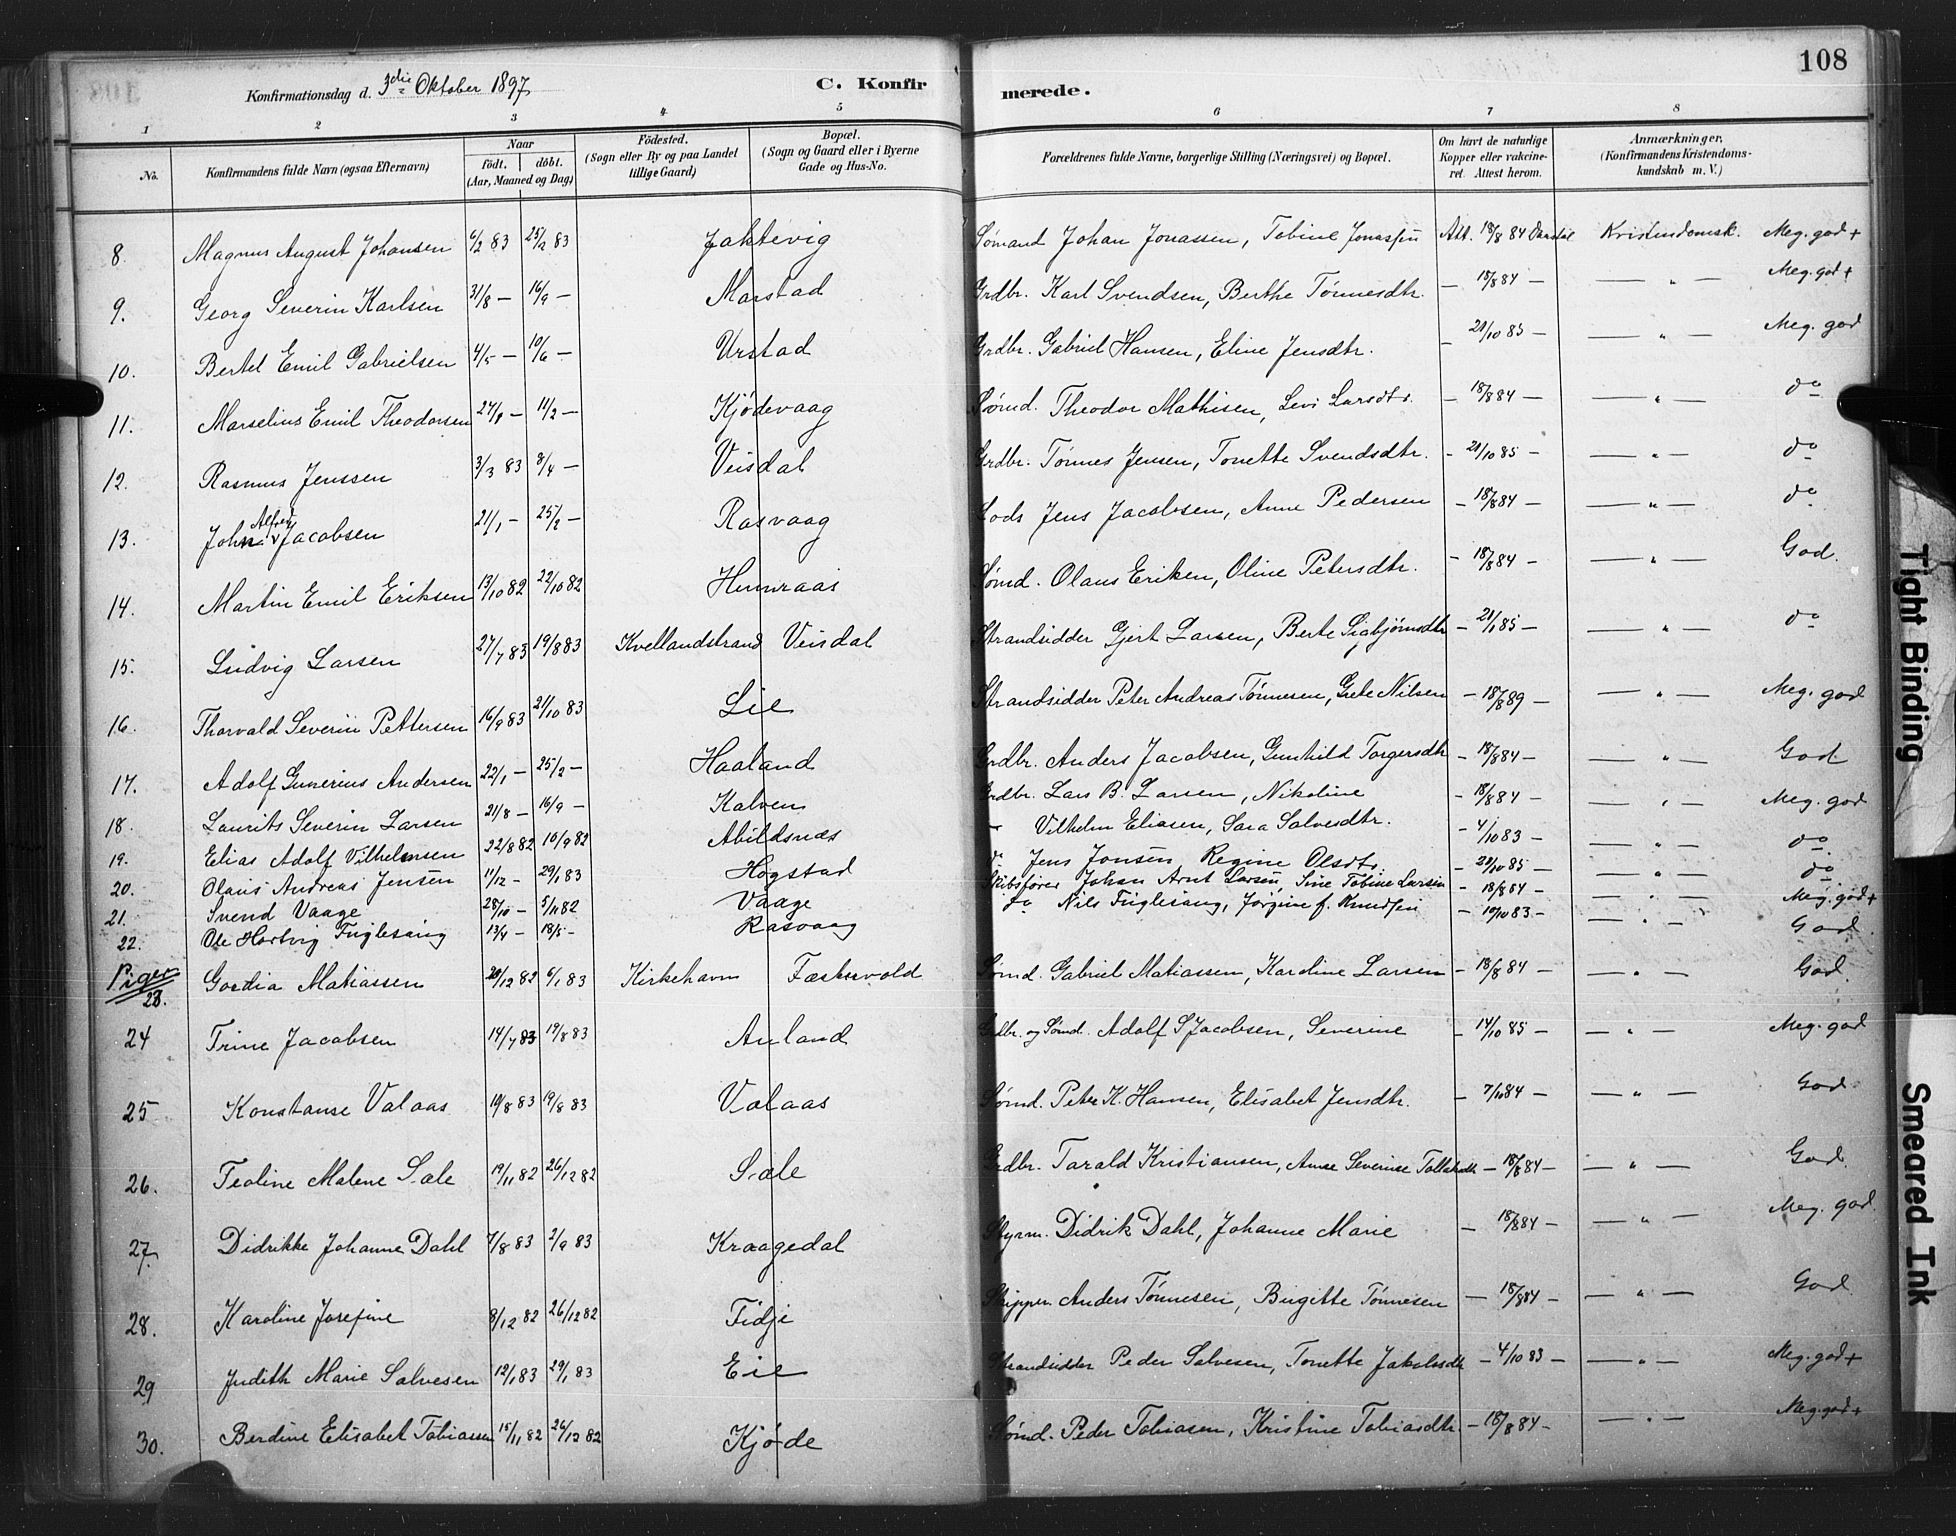 108
Konfirmationsdag d. 3die Oktober 1897 C. Konfirmerede.
1 2 3 4 5 6 7 8
No. Konfirmandens fulde Navn (ogsaa Efternavn) Naar Født. døbt. (Aar, Maaned og Dag) Fødested. (Sogn eller By og paa Landet tillige Gaard) Bopæl. (Sogn og Gaard eller i Byerne Gade og Hus-No. Forældrenes fulde Navne, borgerlige Stilling (Næringsvei) og Bopæl. Om havt de naturlige Kopper eller vakcineret. Attest herom. Anmærkninger, (Konfirmandens Kristendomskundskab m. V.)
8. Magnus August Johansen 6/2 83 25/2 83 Jaktevig Sømand Johan Jonassen, Tobine Jonassen Att. 18/8 84 Kristendomsk. Meg. god +
9. Georg Severin Karlsen 31/8 — 16/9 — Marstad Grdbr. Karl Svendsen, Berthe Tønnesdtr. — 18/8 84 — — " — Meg. god +
10. Bertel Emil Gabrielsen 4/5 — 10/6 — Urstad Grdbr. Gabriel Hansen, Eline Jensdtr. — 21/10 85 — — " — Meg. god
11. Marselius Emil Theodorsen — 11/2 — Kjødevaag Sømd. Theodor Mathisen, Levi Larsdtr. — 18/8 84 — — " — do
12. Rasmus Jenssen 3/3 83 8/4 — Veisdal Grdbr. Tønnes Jensen, Tonette Svendsdtr. — 21/10 85 — — " — do
13. John Alfred Jacobsen 21/1 — 25/2 — Rasvaag Lods Jens Jacobsen, Anne Pedersen — 18/8 84 — — " — do
14. Martin Emil Eriksen 13/10 82 22/10 82 Hunraas Sømd. Olaus Eriken, Oline Petersdtr. — 18/8 84 — — " — God.
15. Ludvig Larsen 27/7 83 19/8 83 Kvellandstrand Veisdal Strandsidder Gjert Larsen, Berte Sigbjørnsdtr — 85 — — " — do
16. Thorvald Severin Pettersen 16/9 83 21/10 83 Lie Strandsidder Peter Andreas Tønnesen, Grete Nilsen — 18/8 89 — — " — Meg. god
17. Adolf Gunerius Andersen 22/1 — 25/2 — Haaland Grdbr. Anders Jacobsen, Gunhild Torgersdtr — 18/8 84 — — " — God
18. Laurits Severin Larsen 21/8 — 16/9 — Kalven Grdbr. Lars B. Larsen, Nikoline — 18/8 84 — — " — Meg. god
19. Elias Adolf Vilhelmsen 22/8 82 10/9 82 Abildsnæs — Vilhelm Eliasen, Sara Salvesdtr. — 4/10 83 — — " — do
20. Olaus Andreas Jensen 11/12 — 29/1 83 Høgstad Jens Jonsen, Regine Olsdtr — 21/10 85 — — " — do
21. Svend Vaage 28/10 — 5/11 82 Vaage Skibsfører Johan Arnt Larsen, Sine Tobine Larsen — 18/8 84 — — " — Meg. god +
22. Ole Hartvig Fuglesang 13/4 — 18/5 — Rasvaag do Nils Fuglesang, Jørgine f. Knudsen — 19/10 83 — — " — God
Piger
23. Gordia Matiassen 20/12 82 6/1 83 Kirkehavn Faskevold Sømd. Gabriel Matiassen, Karoline Larsen — 18/8 84 — — " — God
24 Trine Jacobsen 14/7 83 19/8 83 Auland Grdbr. og Sømd. Adolf S Jacobsen, Severine — 14/10 85 — — " — Meg. god
25 Konstanse Valaas 19/8 83 19/8 83 Valaas Sømd. Peter K. Hansen, Elisabet Jensdtr. — 7/10 84 — — " — God
26. Teoline Malene Sæle 19/11 82 26/12 82 Sæle Grdbr. Tarald Kristiansen, Anne Severine Tollaksdtr — 18/8 84 — — " — God
27. Didrikke Johanne Dahl 7/8 83 2/9 83 Kraagedal Styrm. Didrik Dahl, Johanne Marie — 18/8 84 — — " — Meg. god
28. Karoline Josefine 8/12 82 26/12 82 Fidje Skipper Anders Tønnesen, Birgitte Tønnesen — 18/8 84 — — " — God
29 Judith Marie Salvesen 12/1 83 29/1 83 Eie Strandsidder Peder Salvesen, Tonette Jakobsdtr — 4/10 83 — — " — Meg. god +
30. Berdine Elisabet Tobiassen 15/11 82 26/12 82 Kjøde Sømd. Peder Tobiasen, Kristine Tobiasdtr. — 18/8 84 — — " — Meg. god +
Tight Binding
Smeared Ink